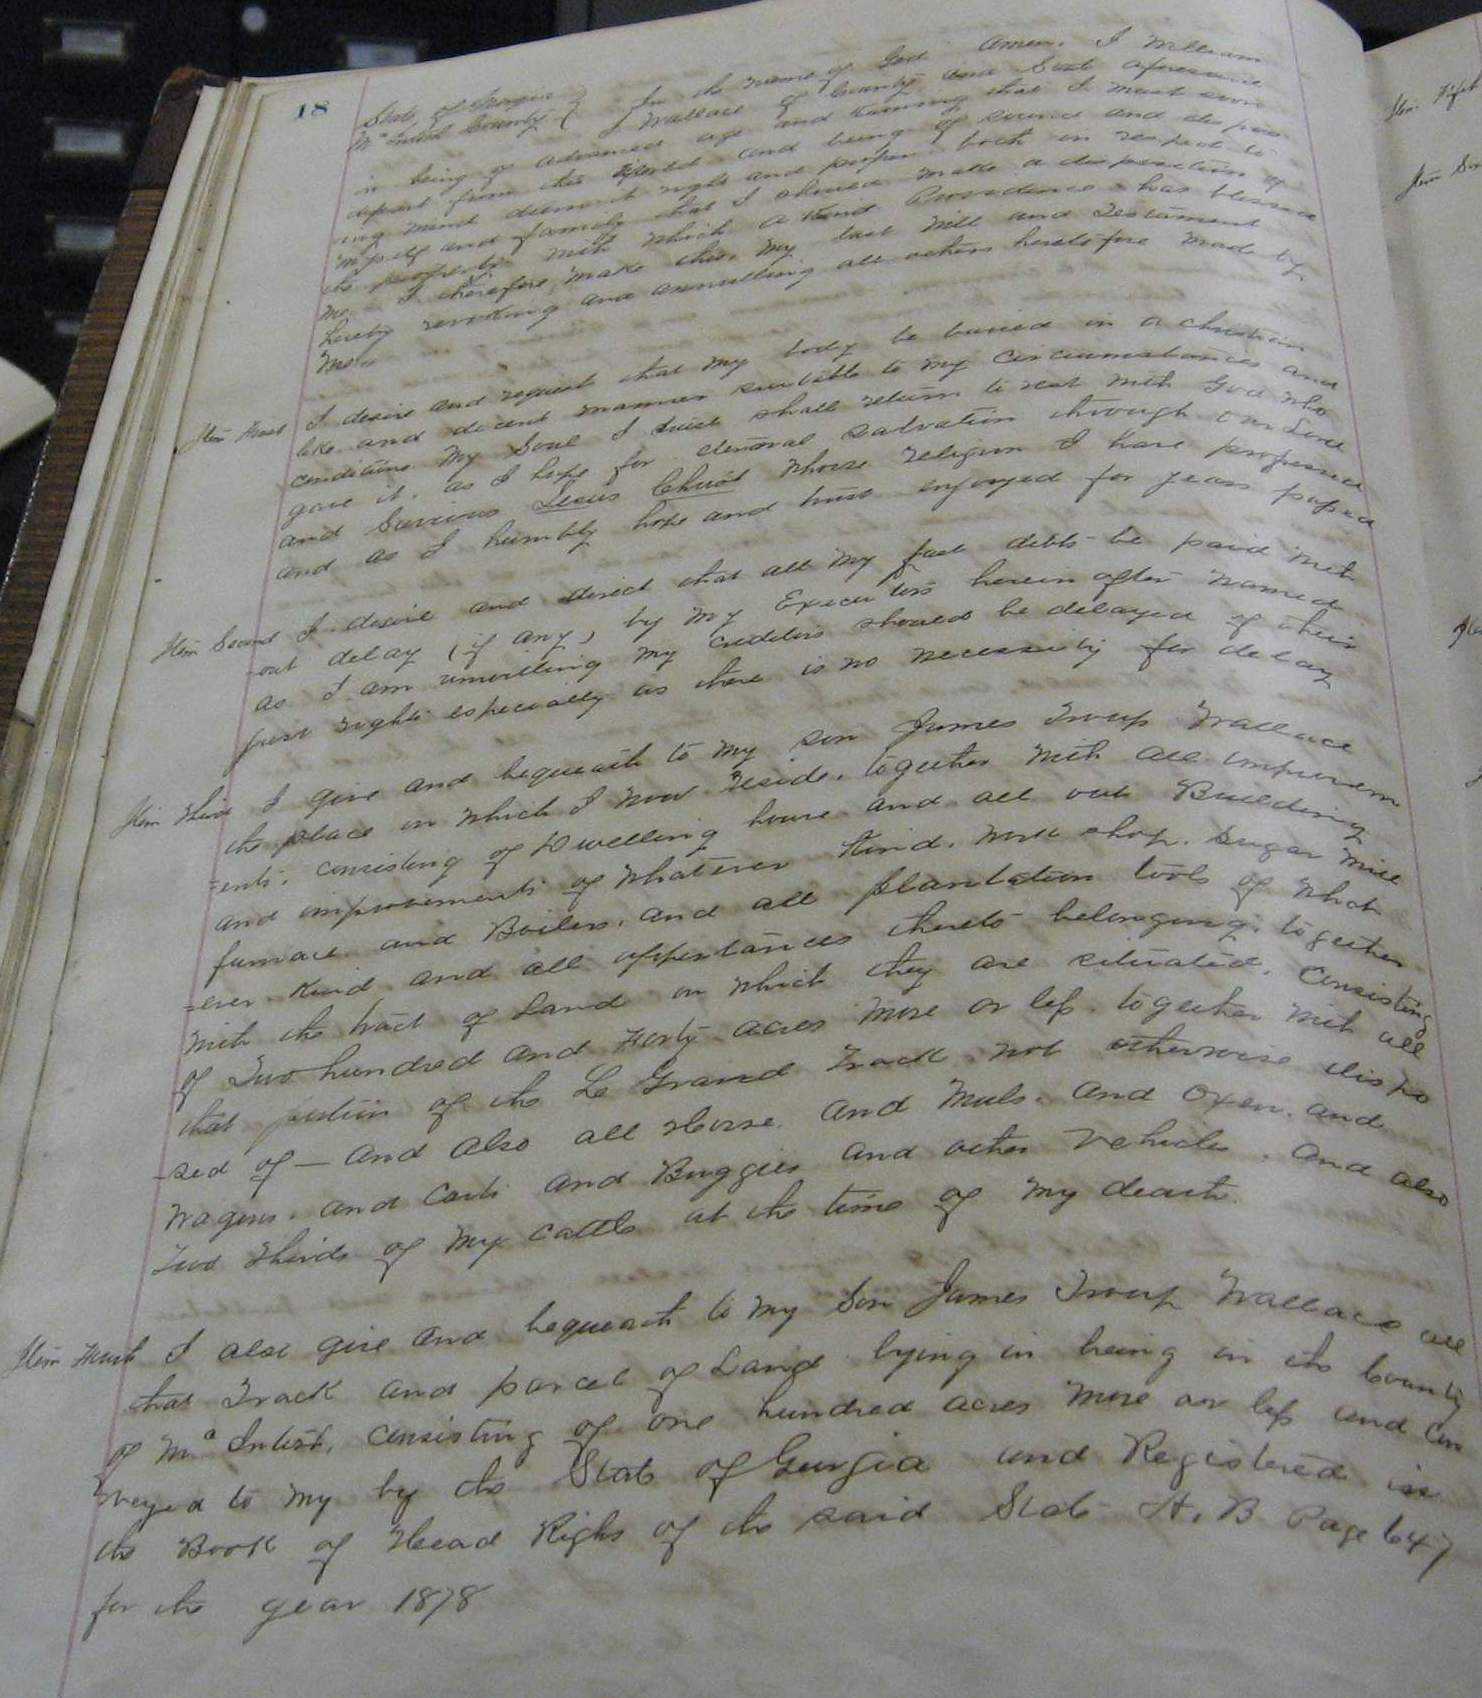 18
State of Georgia } In the name of God Amen. I William
McIntosh County } J Wallace of County and State aforesaid
in being of advanced age and knowing that I must soon
depart from this World and being of sound and dispos
ing mind deem it right and proper both in respect to
myself and family that I should make a disposition of
the property with which a Kind Providence has blessed
me. I therefore make this my last Will and Testament
hereby revoking and annulling all others heretofore made by
me.
Item First I desire and request that my body be buried in a christian
like and decent manner suitable to my circumstances and
conditions My Soul I trust shall return to rest with God who
gave it, as I hope for eternal salvation through Our Lord
and Saviour Jesus Christ whose religion I have professed
and as I humbly hope and trust enjoyed for years passed
Item Second I desire and direct that all my just debts be paid with
-out delay (if any) by my Executors herein after named
as I am unwilling my creditors should be delayed of their
just rights especially as there is no necessity for delay
Item Third I give and bequeath to my son James Troup Wallace
the place on which I now reside, together with all improvem
=ents, consisting of Dwelling house and all out Building
and improvements of whatever Kind, work shop, Sugar Mill
furnace and Boilers, and all plantation tools of what
=ever Kind and all appertances thereto belonging, together
with the tract of Land on which they are situated, consisting
of Two hundred and Forty acres more or less, together with all
that portion of the Le Grand Track not otherwise dispo
-sed of — and also all Horse and Muls. and Oxen, and
Wagons, and Carts and Buggies and other Vehicles, and also
Two Thirds of my cattle at the time of my death.
Item Fourth I also give and bequeath to my Son James Troup Wallace all
that Track and parcel of Land lying in being in the County
of McIntosh, consisting of one hundred acres more or less and con
veyed to my by the State of Georgia and Registered in
the Book of Head Rights of the said State H. B Page 647
for the year 1878
Item. Fifth